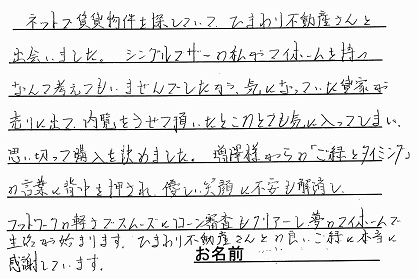 ネットで賃貸物件を探していて、ひまわり不動産さんと
出会いました。シングルマザーの私がマイホームを持つ
なんて考えてもいませんでしたが、気になっていた貸家が
売りに出て、内覧をさせて頂いたところとても気に入ってしまい、
思い切って購入を決めました。増澤様からの「ご縁とタイミング」
の言葉に背中を押され、優しい笑顔に不安も解消し、
フットワークの軽さでスムーズにローン審査もクリアーし夢のマイホームで
生活が始まります。ひまわり不動産さんとの良いご縁に本当に
感謝しています。
お名前